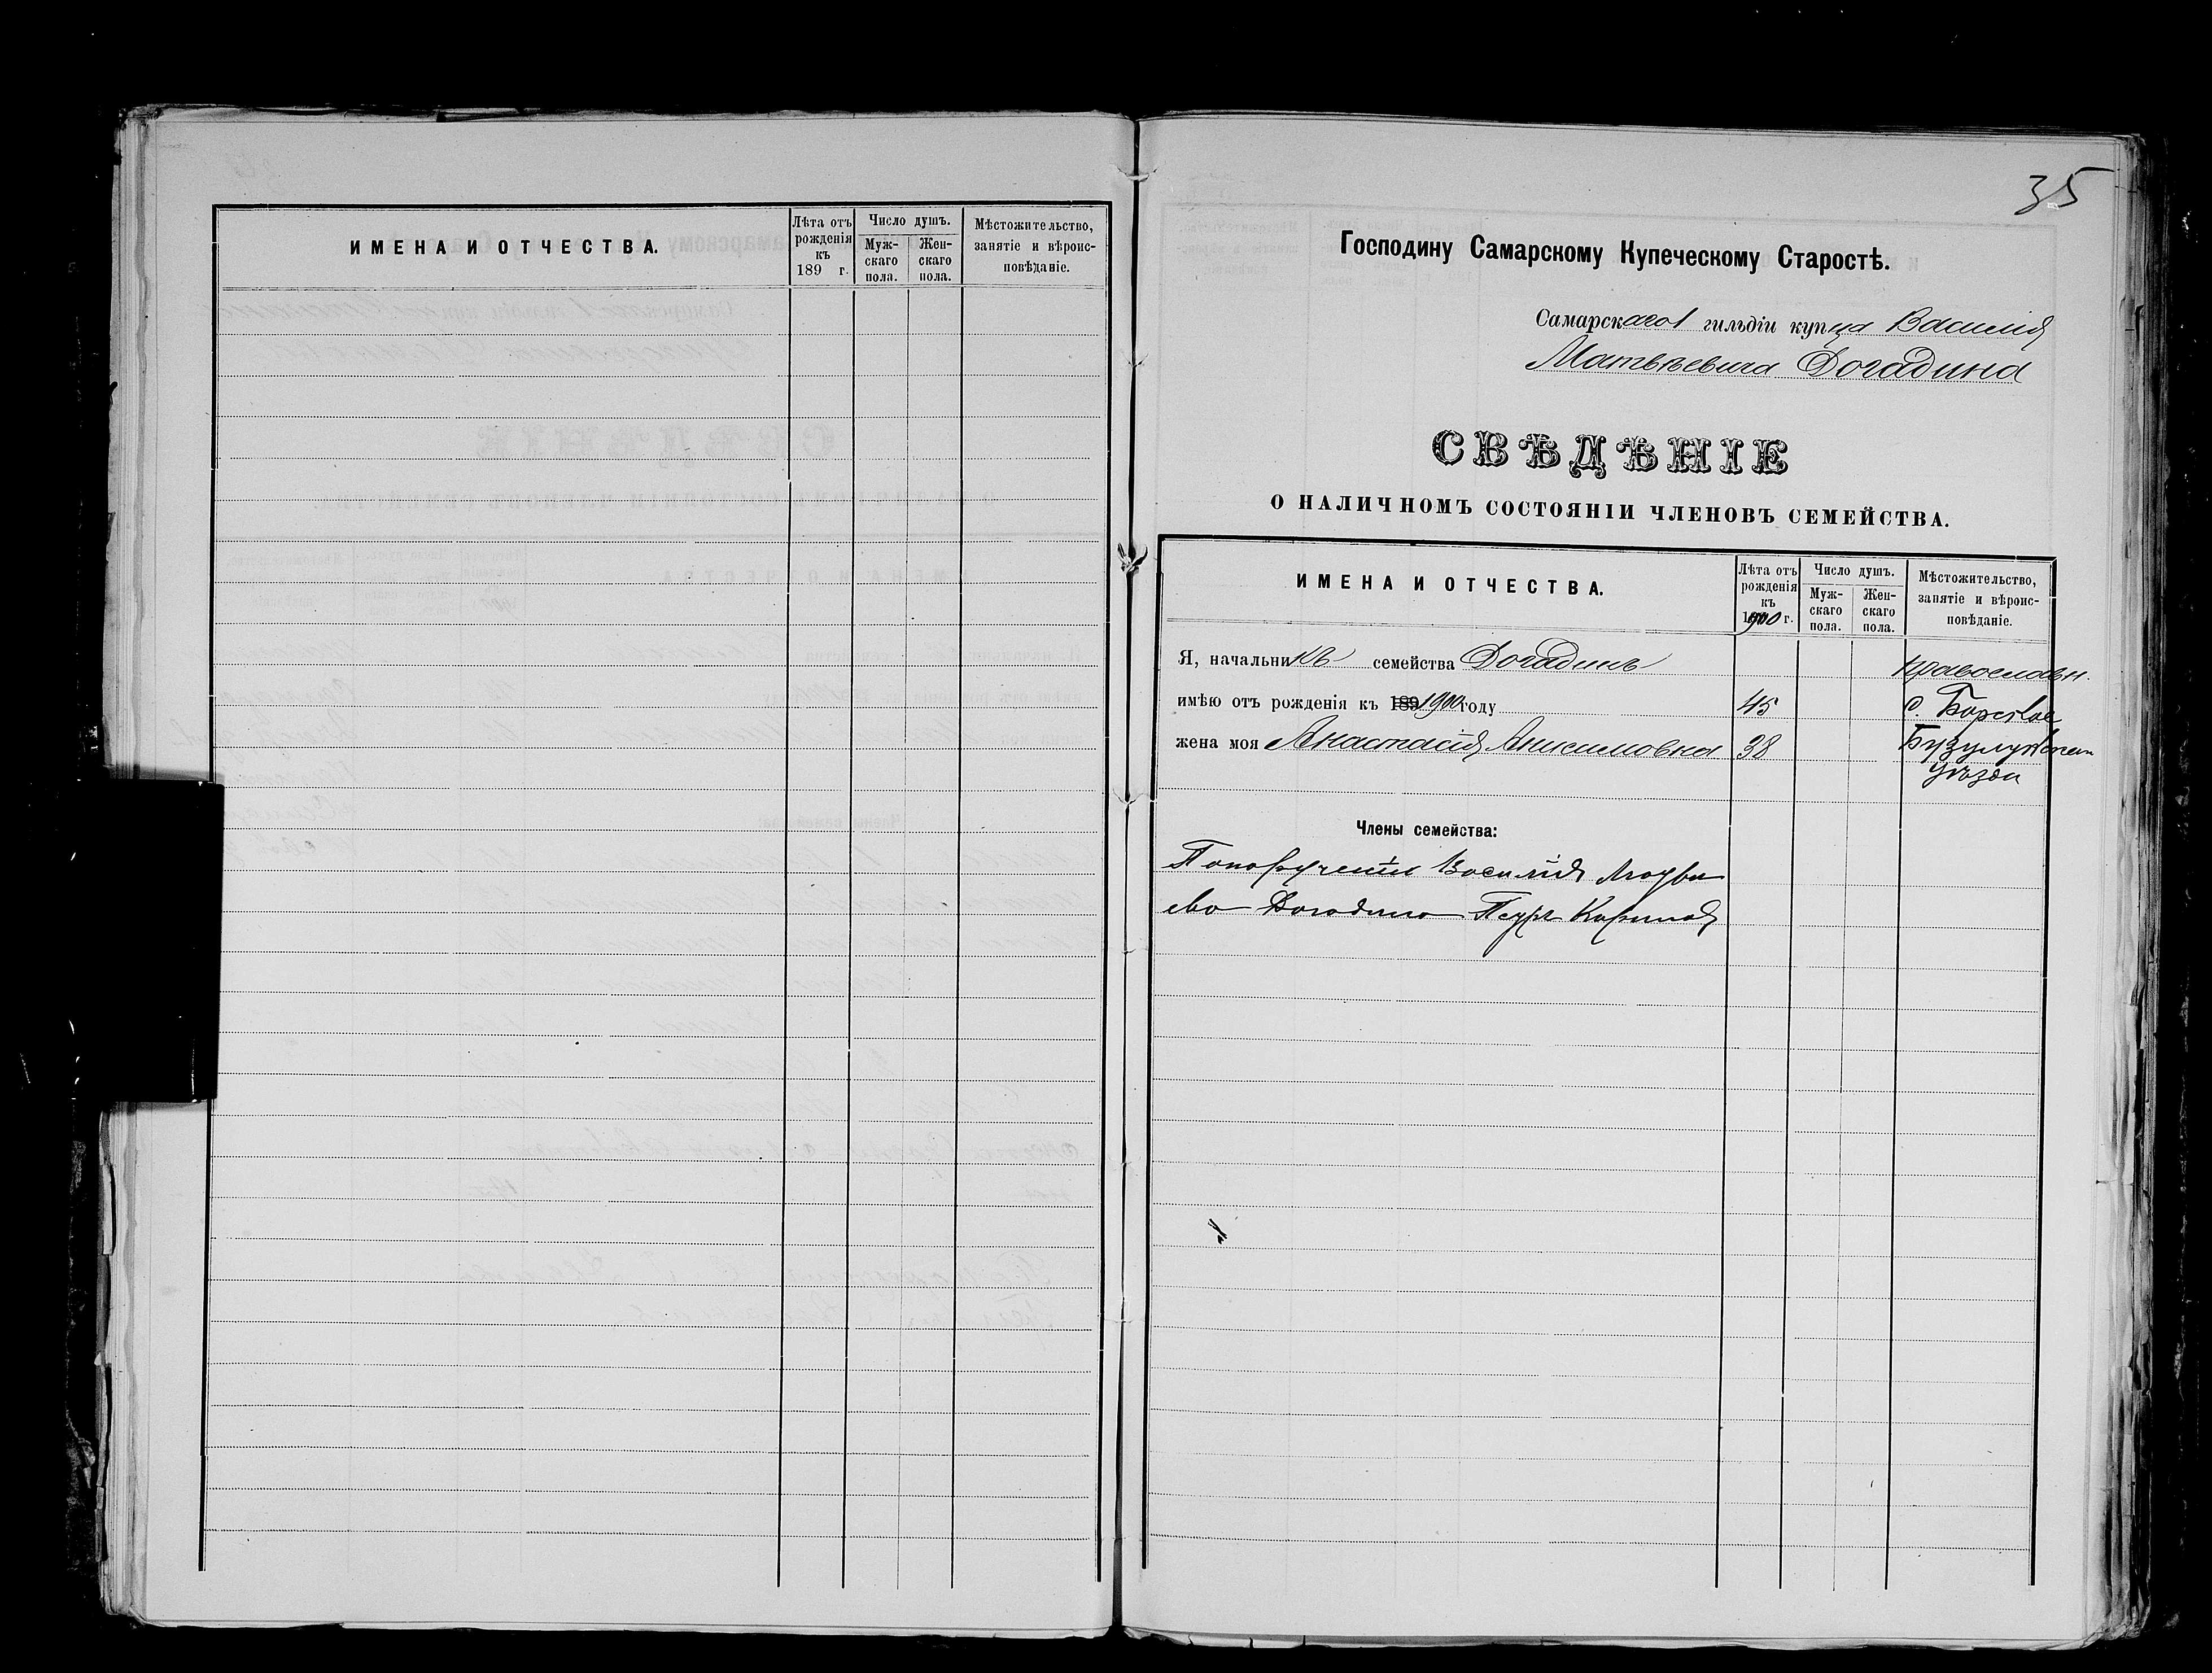 ИМЕНА И ОТЧЕСТВА.
Лѣта отъ рожденія къ 189 г.
Число душъ.
Муж-скаго пола.
Жен-скаго пола.
Мѣстожительство, занятіе и вѣроис-повѣданіе.
35
Господину Самарскому Купеческому Старостѣ.
Самарскаго 1 гильдіи купца Василія
Матвѣевича Догадина
СВѢДѢНІЕ
О НАЛИЧНОМЪ СОСТОЯНІИ ЧЛЕНОВЪ СЕМЕЙСТВА.
ИМЕНА И ОТЧЕСТВА.
Лѣта отъ рожденія къ 1900 г.
Число душъ.
Муж-скаго пола.
Жен-скаго пола.
Мѣстожительство, занятіе и вѣроис-повѣданіе.
Я, начальникъ семейства Догадинъ православн.
имѣю отъ рожденія къ 189 1900 году 45 с. Борское
жена моя Анастасія Анисимовна 38 Бузулукскаго
уѣзда
Члены семейства:
По порученію Василія Матвѣ
ева Догадина Петръ